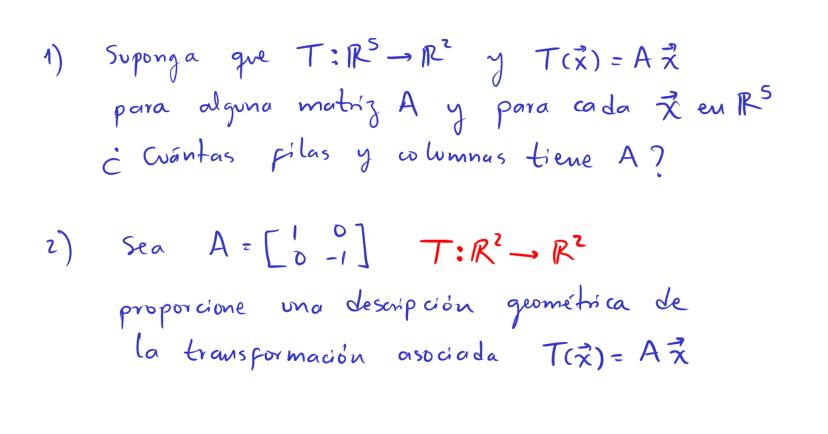 1) Suponga que T:ℝ⁵→ℝ² y T(x⃗) = A x⃗
para alguna matriz A y para cada x⃗ en ℝ⁵
¿ Cuántas filas y columnas tiene A?
2) Sea A = [1 0; 0 -1] T:ℝ²→ℝ²
proporcione una descripción geométrica de
la transformación asociada T(x⃗) = A x⃗